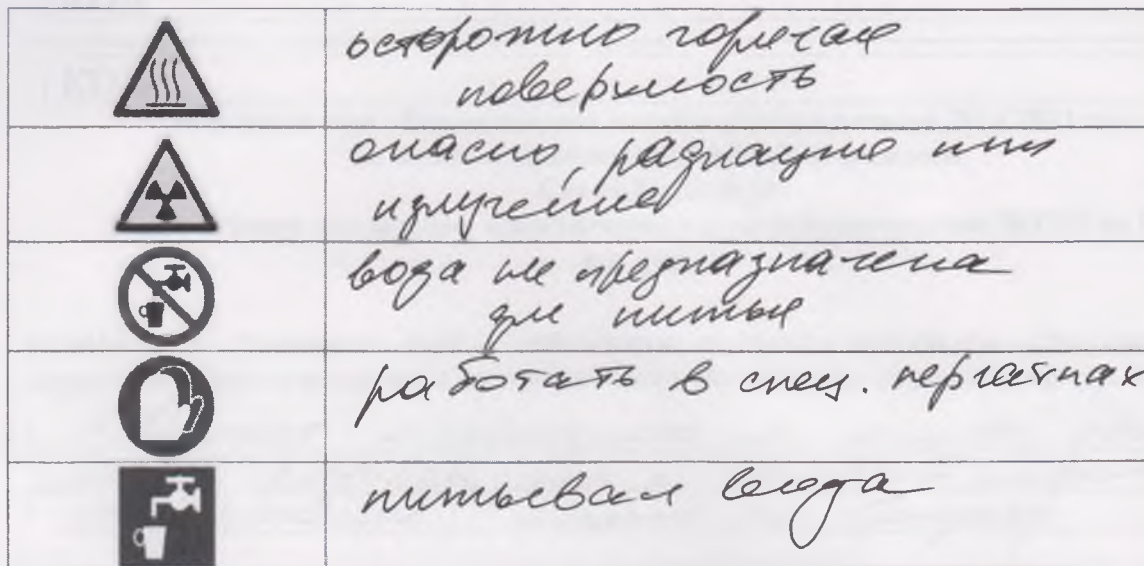 осторожно горячая
поверхность
опасно, радиация или
излучение
вода не предназначена
для питья
работать в спец. перчатках
питьевая вода